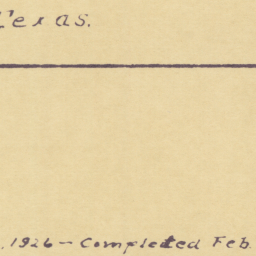 Texas.
, 1926 — Completed Feb.